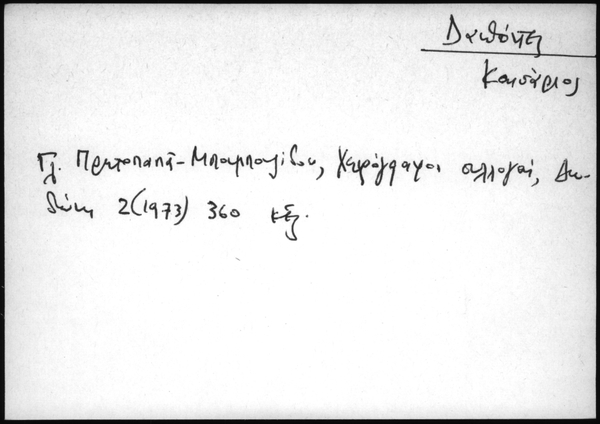 Δαπόντες
Καισάριος
Γλ. Πρωτοπαπᾶ-Μπουμπουλίδου, Χειρόγραφοι συλλογαί, Δω-
δώνη 2(1973) 360 κἑξ.